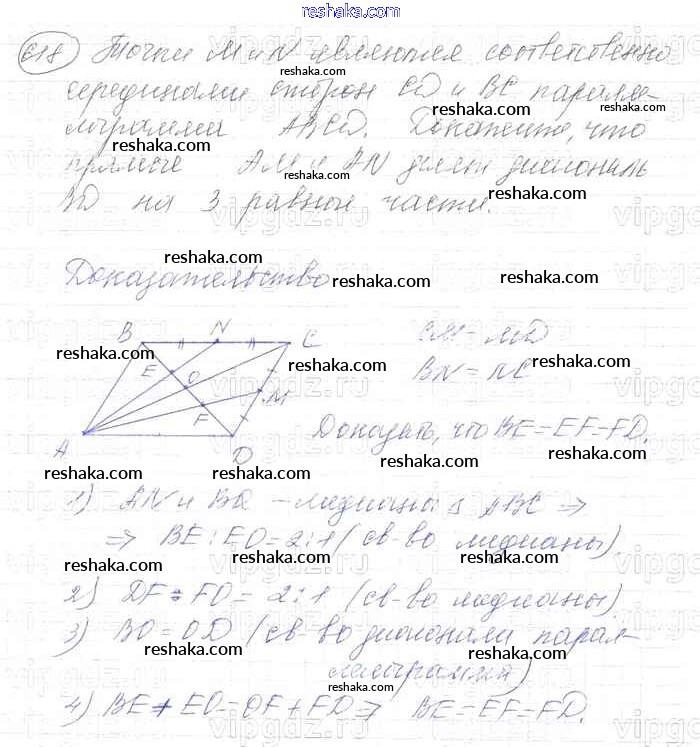 reshaka.com
618 Точки M и N являются соответственно
reshaka.com
серединами сторон CD и BC паралле-
reshaka.com
лограмма ABCD. Докажите, что
reshaka.com
прямые AM и AN делят диагональ
reshaka.com
BD на 3 равные части.
reshaka.com reshaka.com
vipgdz.ru
reshaka.com
Доказательство
reshaka.com reshaka.com
vipgdz.ru
B N C
CM = MD
reshaka.com reshaka.com reshaka.com
E O
BN = NC
F M
A D
Доказать, что BE = EF = FD.
reshaka.com reshaka.com reshaka.com
reshaka.com reshaka.com
1) AN и BO - медианы Δ ABC ⇒
reshaka.com reshaka.com
⇒ BE : EO = 2:1 (св-во медианы)
reshaka.com reshaka.com
vipgdz.ru
2) DF : FO = 2:1 (св-во медианы)
reshaka.com
3) BO = OD (св-во диагонали парал-
reshaka.com reshaka.com
лелограмма)
reshaka.com
4) BE + EO = OF + FD ⇒ BE = EF = FD.
reshaka.com reshaka.com